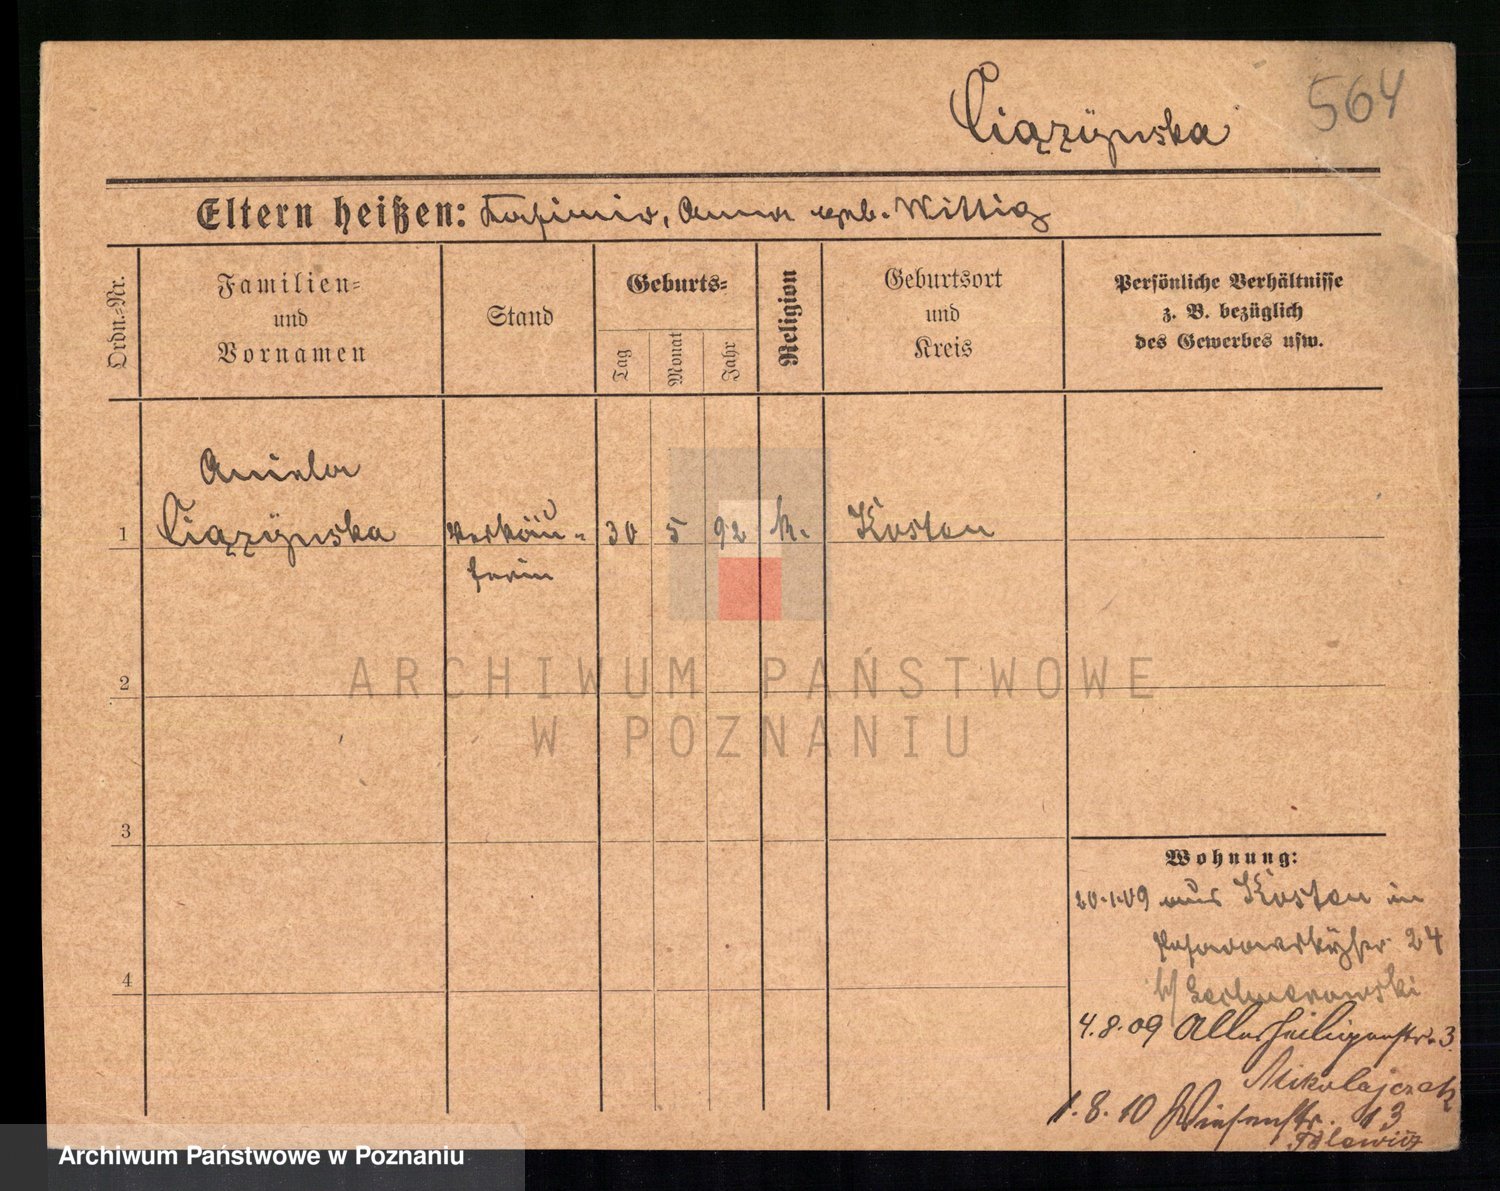 564
Ciązÿnska
Eltern heißen: Kasimir, Anna geb. Wittig
Ordn.-Nr.
Familien-
und
Vornamen
Stand
Geburts-
Tag
Monat
Jahr
Religion
Geburtsort
und
Kreis
Persönliche Verhältnisse
z. B. bezüglich
des Gewerbes usw.
Aniela
1 Ciązÿnska Verkäu- 30 5 92 k. Kosten
ferin
2
3
4
ARCHIWUM PAŃSTWOWE
W POZNANIU
Wohnung:
20.1.09 aus Kosten in
24
b/
4.8.09 Allerheiligenstr. 3.
Mikolajczak
1.8.10 Wiesenstr. 13
Archiwum Państwowe w Poznaniu